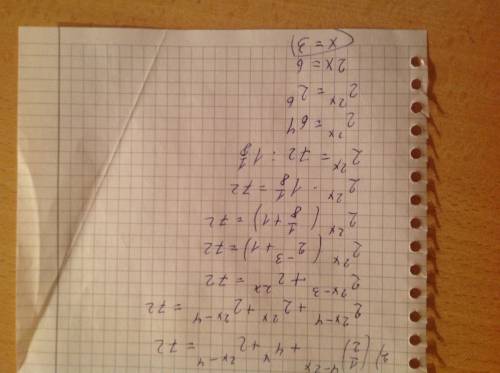 2) (1/2)^(4-2x) + 4^x + 2^(2x-4) = 72
2^(2x-4) + 2^(2x) + 2^(2x-4) = 72
2^(2x-3) + 2^(2x) = 72
2^(2x) (2^(-3) + 1) = 72
2^(2x) (1/8 + 1) = 72
2^(2x) · 1 1/8 = 72
2^(2x) = 72 : 1 1/8
2^(2x) = 64
2^(2x) = 2^6
2x = 6
x = 3